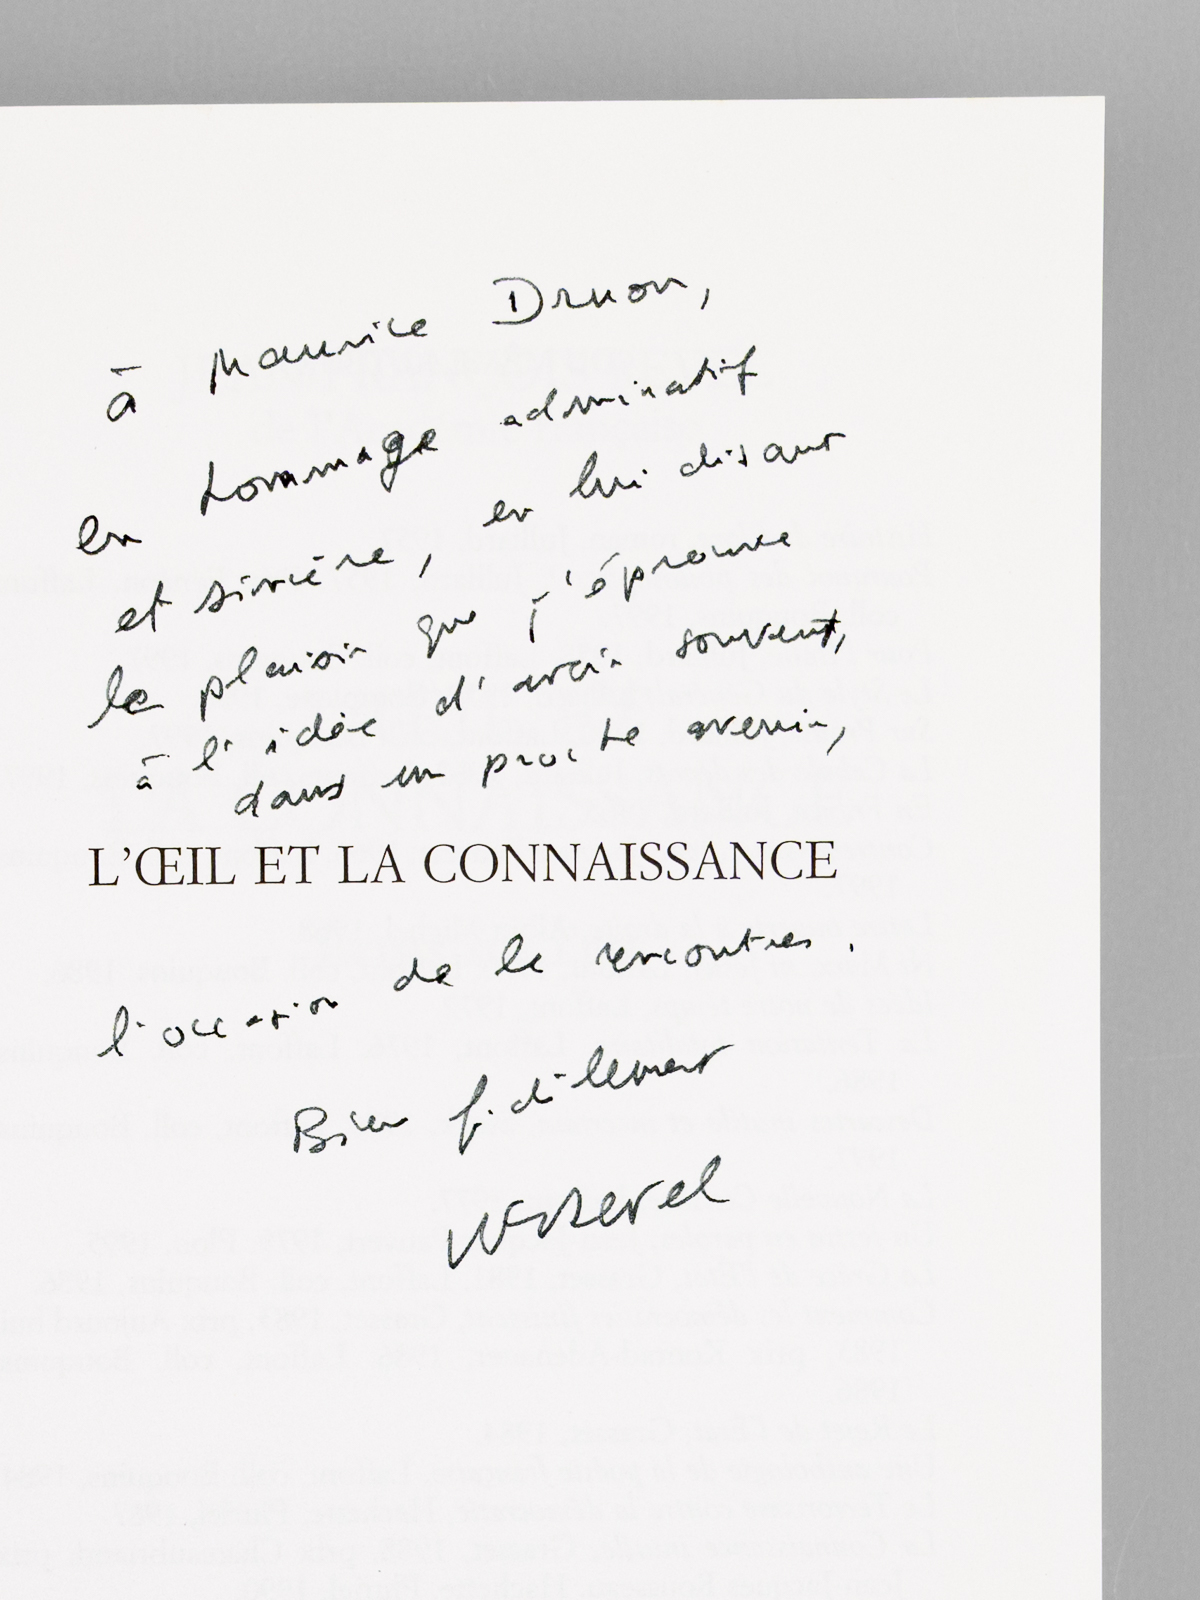 à Maurice Druon,
en hommage admiratif
et sincère, en lui disant
le plaisir que j'éprouve
à l'idée d'avoir souvent,
dans un proche avenir,
L'ŒIL ET LA CONNAISSANCE
l'occasion de le rencontrer.
Bien fidèlement
JFRevel